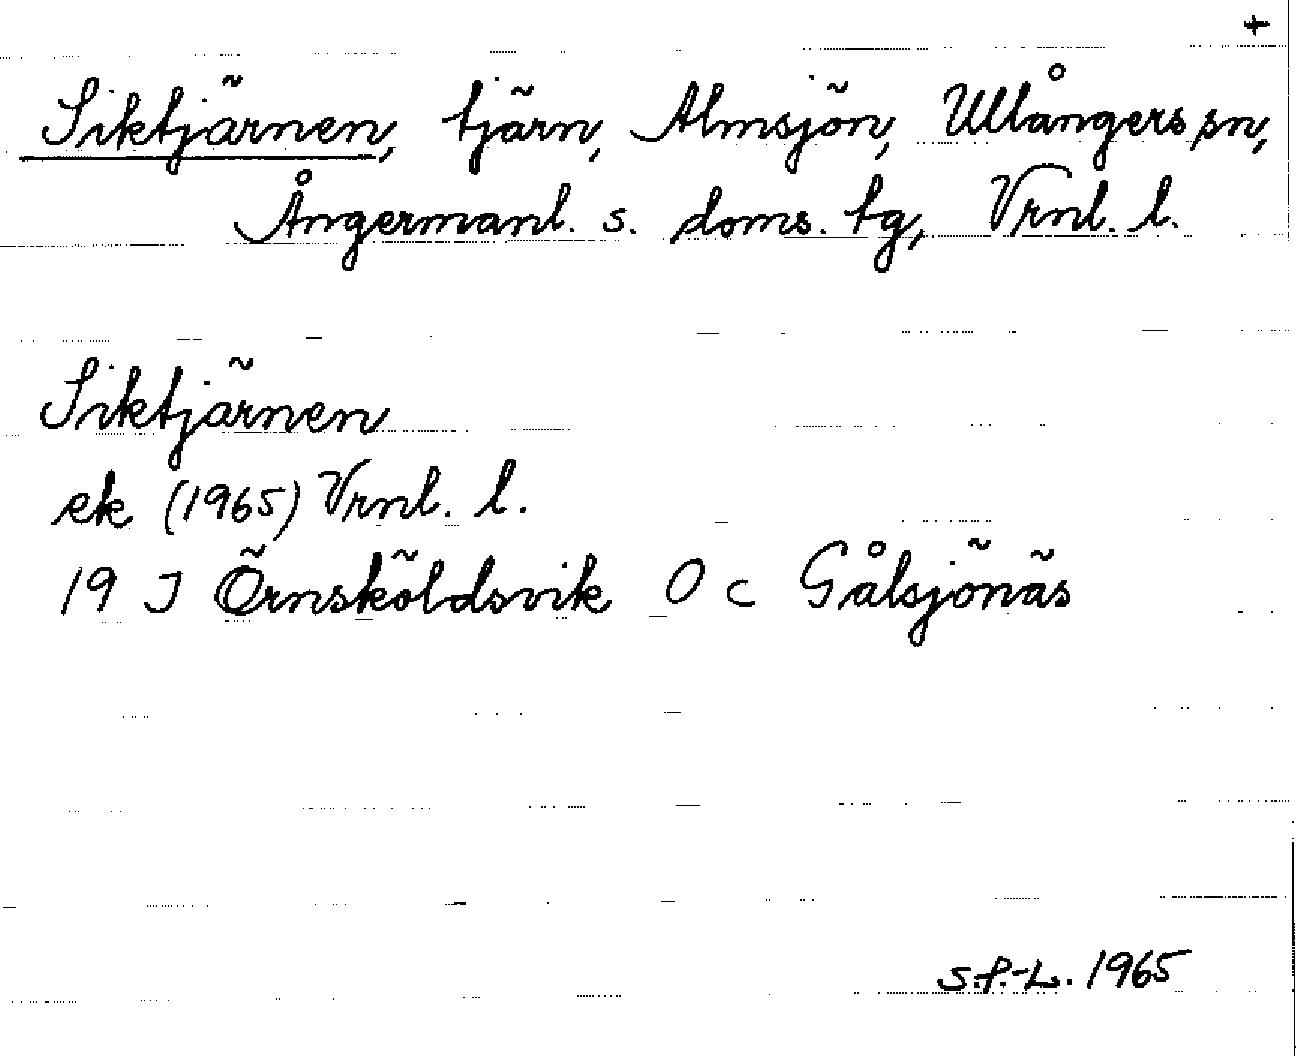 +
Siktjärnen, tjärn, Almsjön, Ullångers sn,
Ångermanl. s. doms. tg, Vrnl. l.
Siktjärnen
ek (1965) Vrnl. l.
19 J Örnsköldsvik O c Gålsjönäs
S.P.-L. 1965